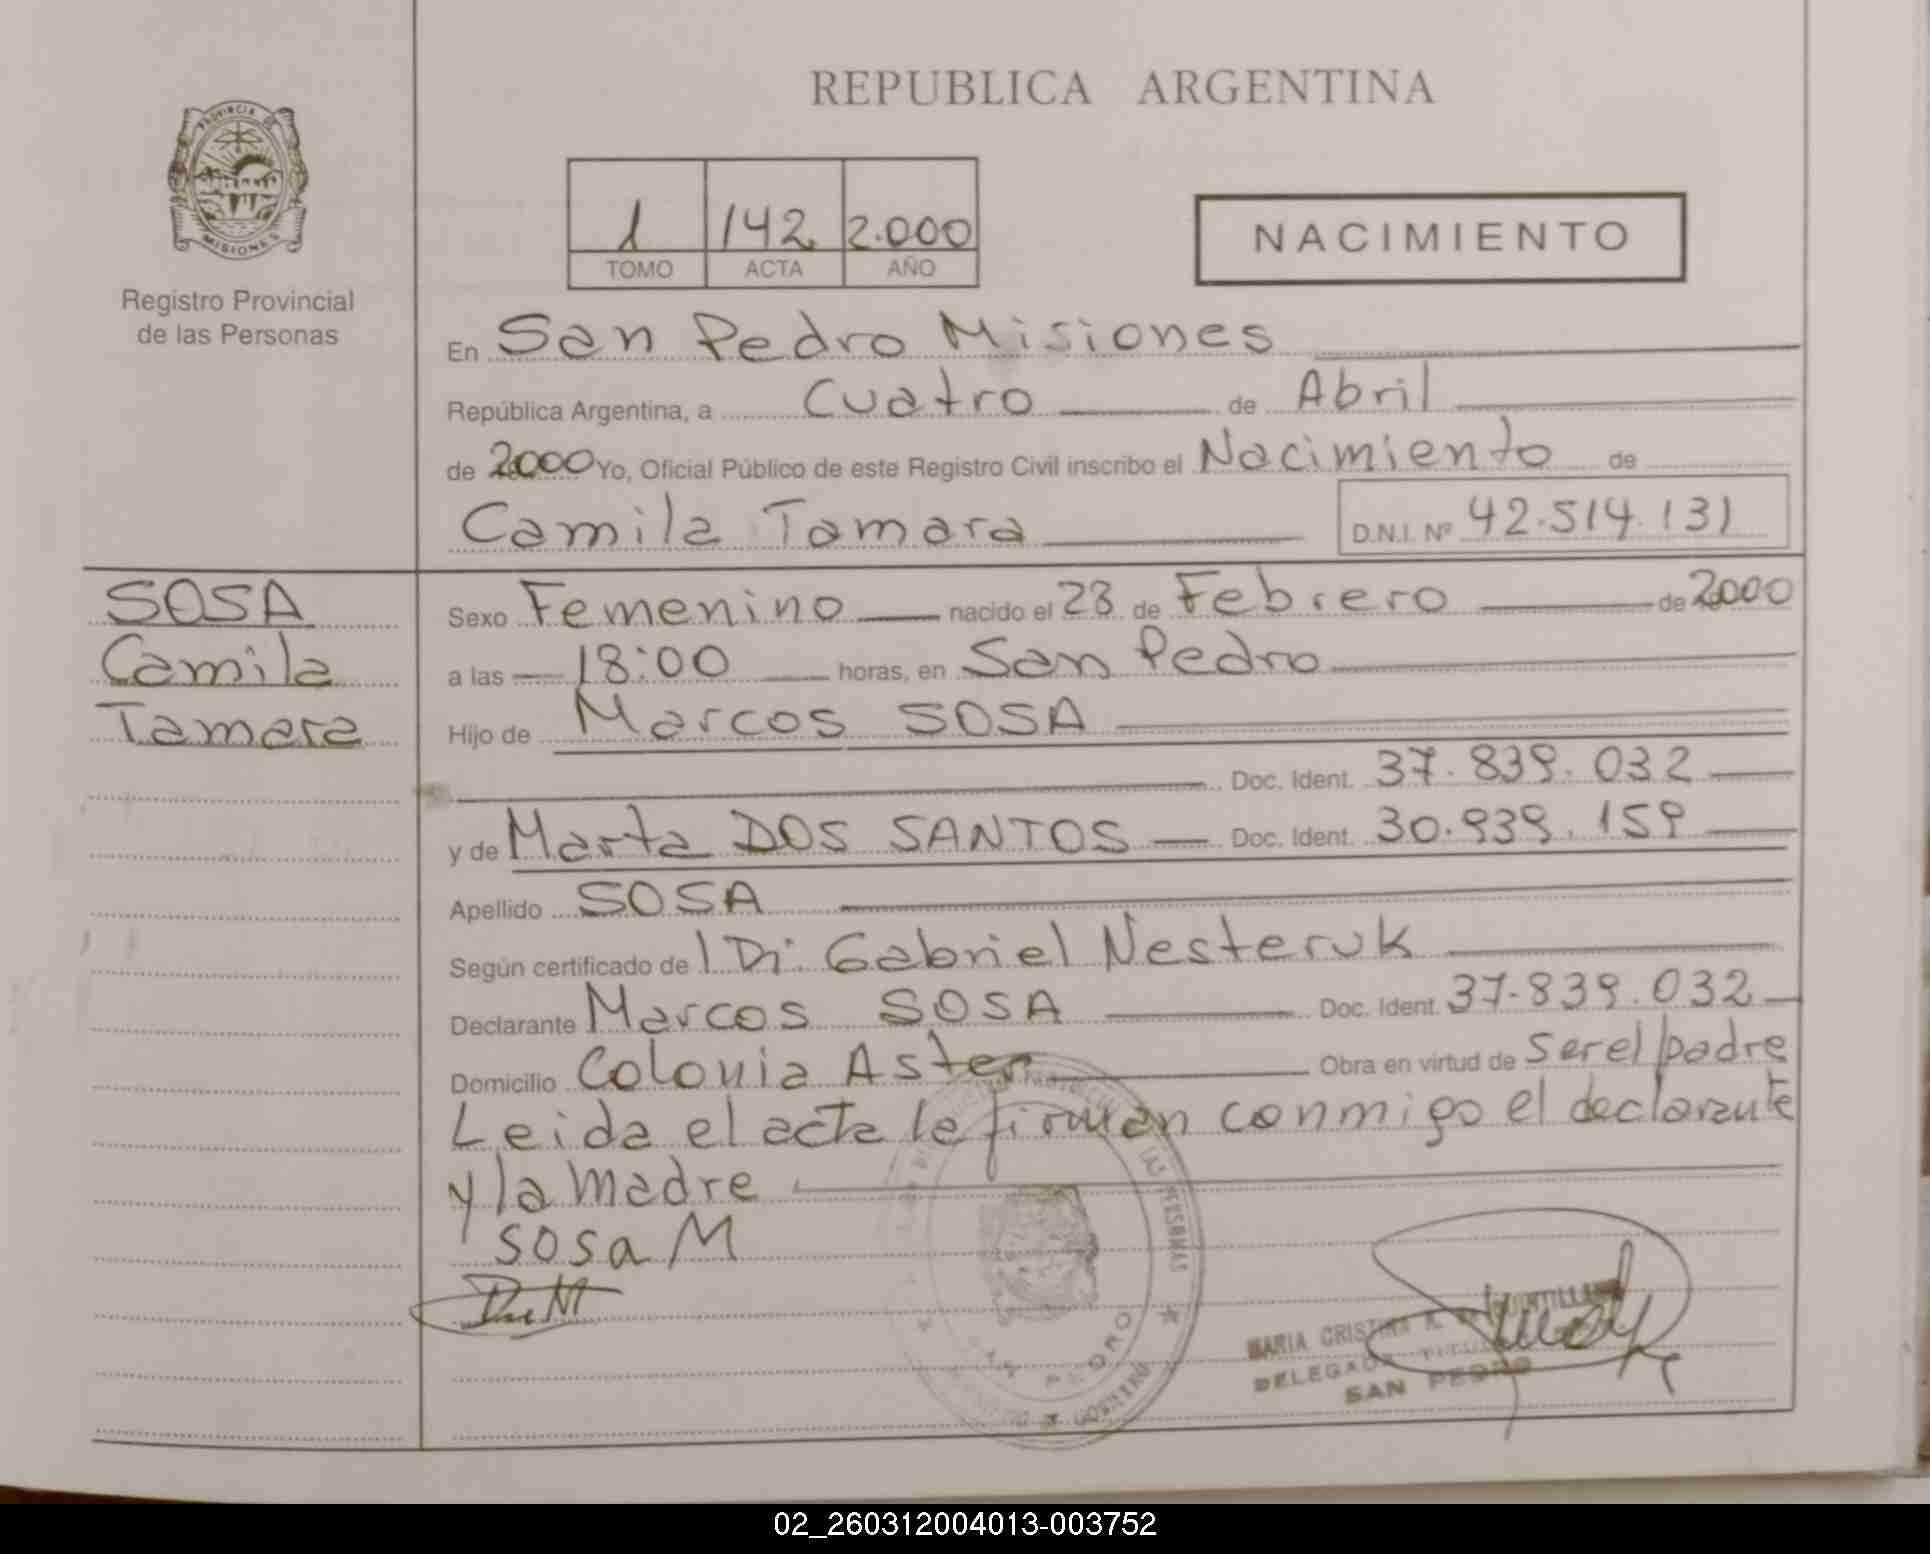 REPUBLICA ARGENTINA
PROVINCIA DE
MISIONES
Registro Provincial
de las Personas
1 142 2.000
TOMO ACTA AÑO
NACIMIENTO
En San Pedro Misiones
República Argentina, a Cuatro de Abril
de 2000 Yo, Oficial Público de este Registro Civil inscribo el Nacimiento de
Camila Tamara D.N.I. Nº 42.514.131
SOSA
Camila
Tamara
Sexo Femenino nacido el 23 de Febrero de 2000
a las 18:00 horas, en San Pedro
Hijo de Marcos SOSA
Doc. Ident. 37.839.032
y de Marta DOS SANTOS Doc. Ident. 30.939.159
Apellido SOSA
Según certificado de l Dr. Gabriel Nesteruk
Declarante Marcos SOSA Doc. Ident. 37.839.032
Domicilio Colonia Aster Obra en virtud de Ser el padre
Leida el acta la firman conmigo el declarante
y la madre
sosa M
LAS PERSONAS
SAN PEDRO
MARIA CRISTINA QUINTILLAN
DELEGADA TITULAR
SAN PEDRO
02_260312004013-003752